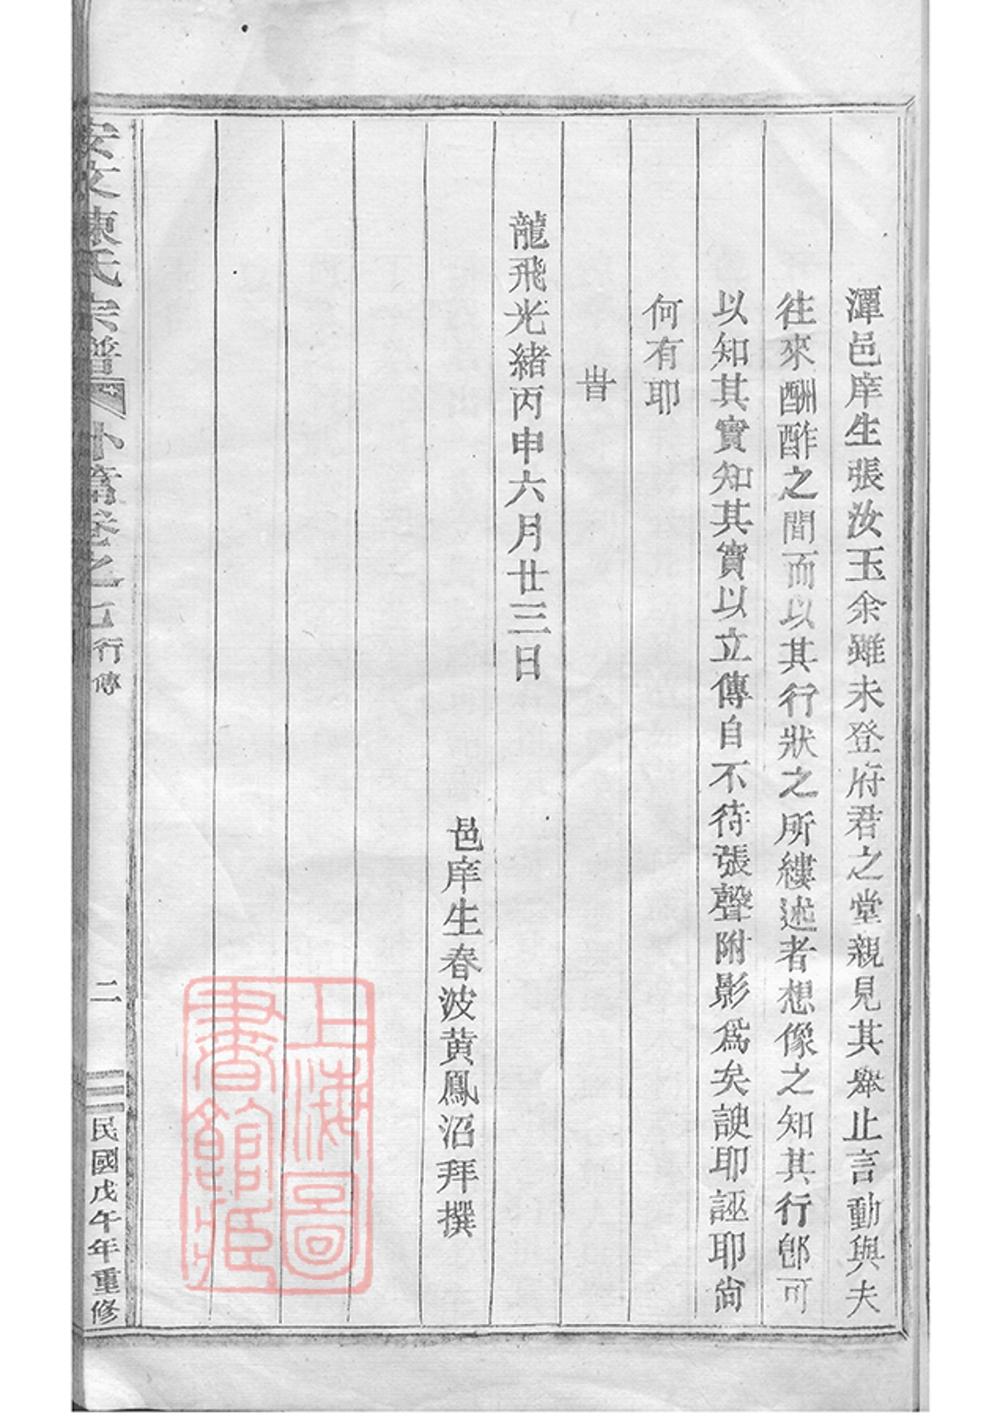 潭邑庠生張汝玉余雖未登府君之堂親見其舉止言動與夫
往來酬酢之間而以其行狀之所縷述者想像之知其行卽可
以知其實知其實以立傳自不待張聲附影爲矣諛耶誣耶尙
何有耶
旹
龍飛光緒丙申六月廿三日
邑庠生春波黃鳳沼拜撰
安文陳氏宗譜 外篇卷之七 行傳 二 民國戊午年重修
上海圖
書館藏